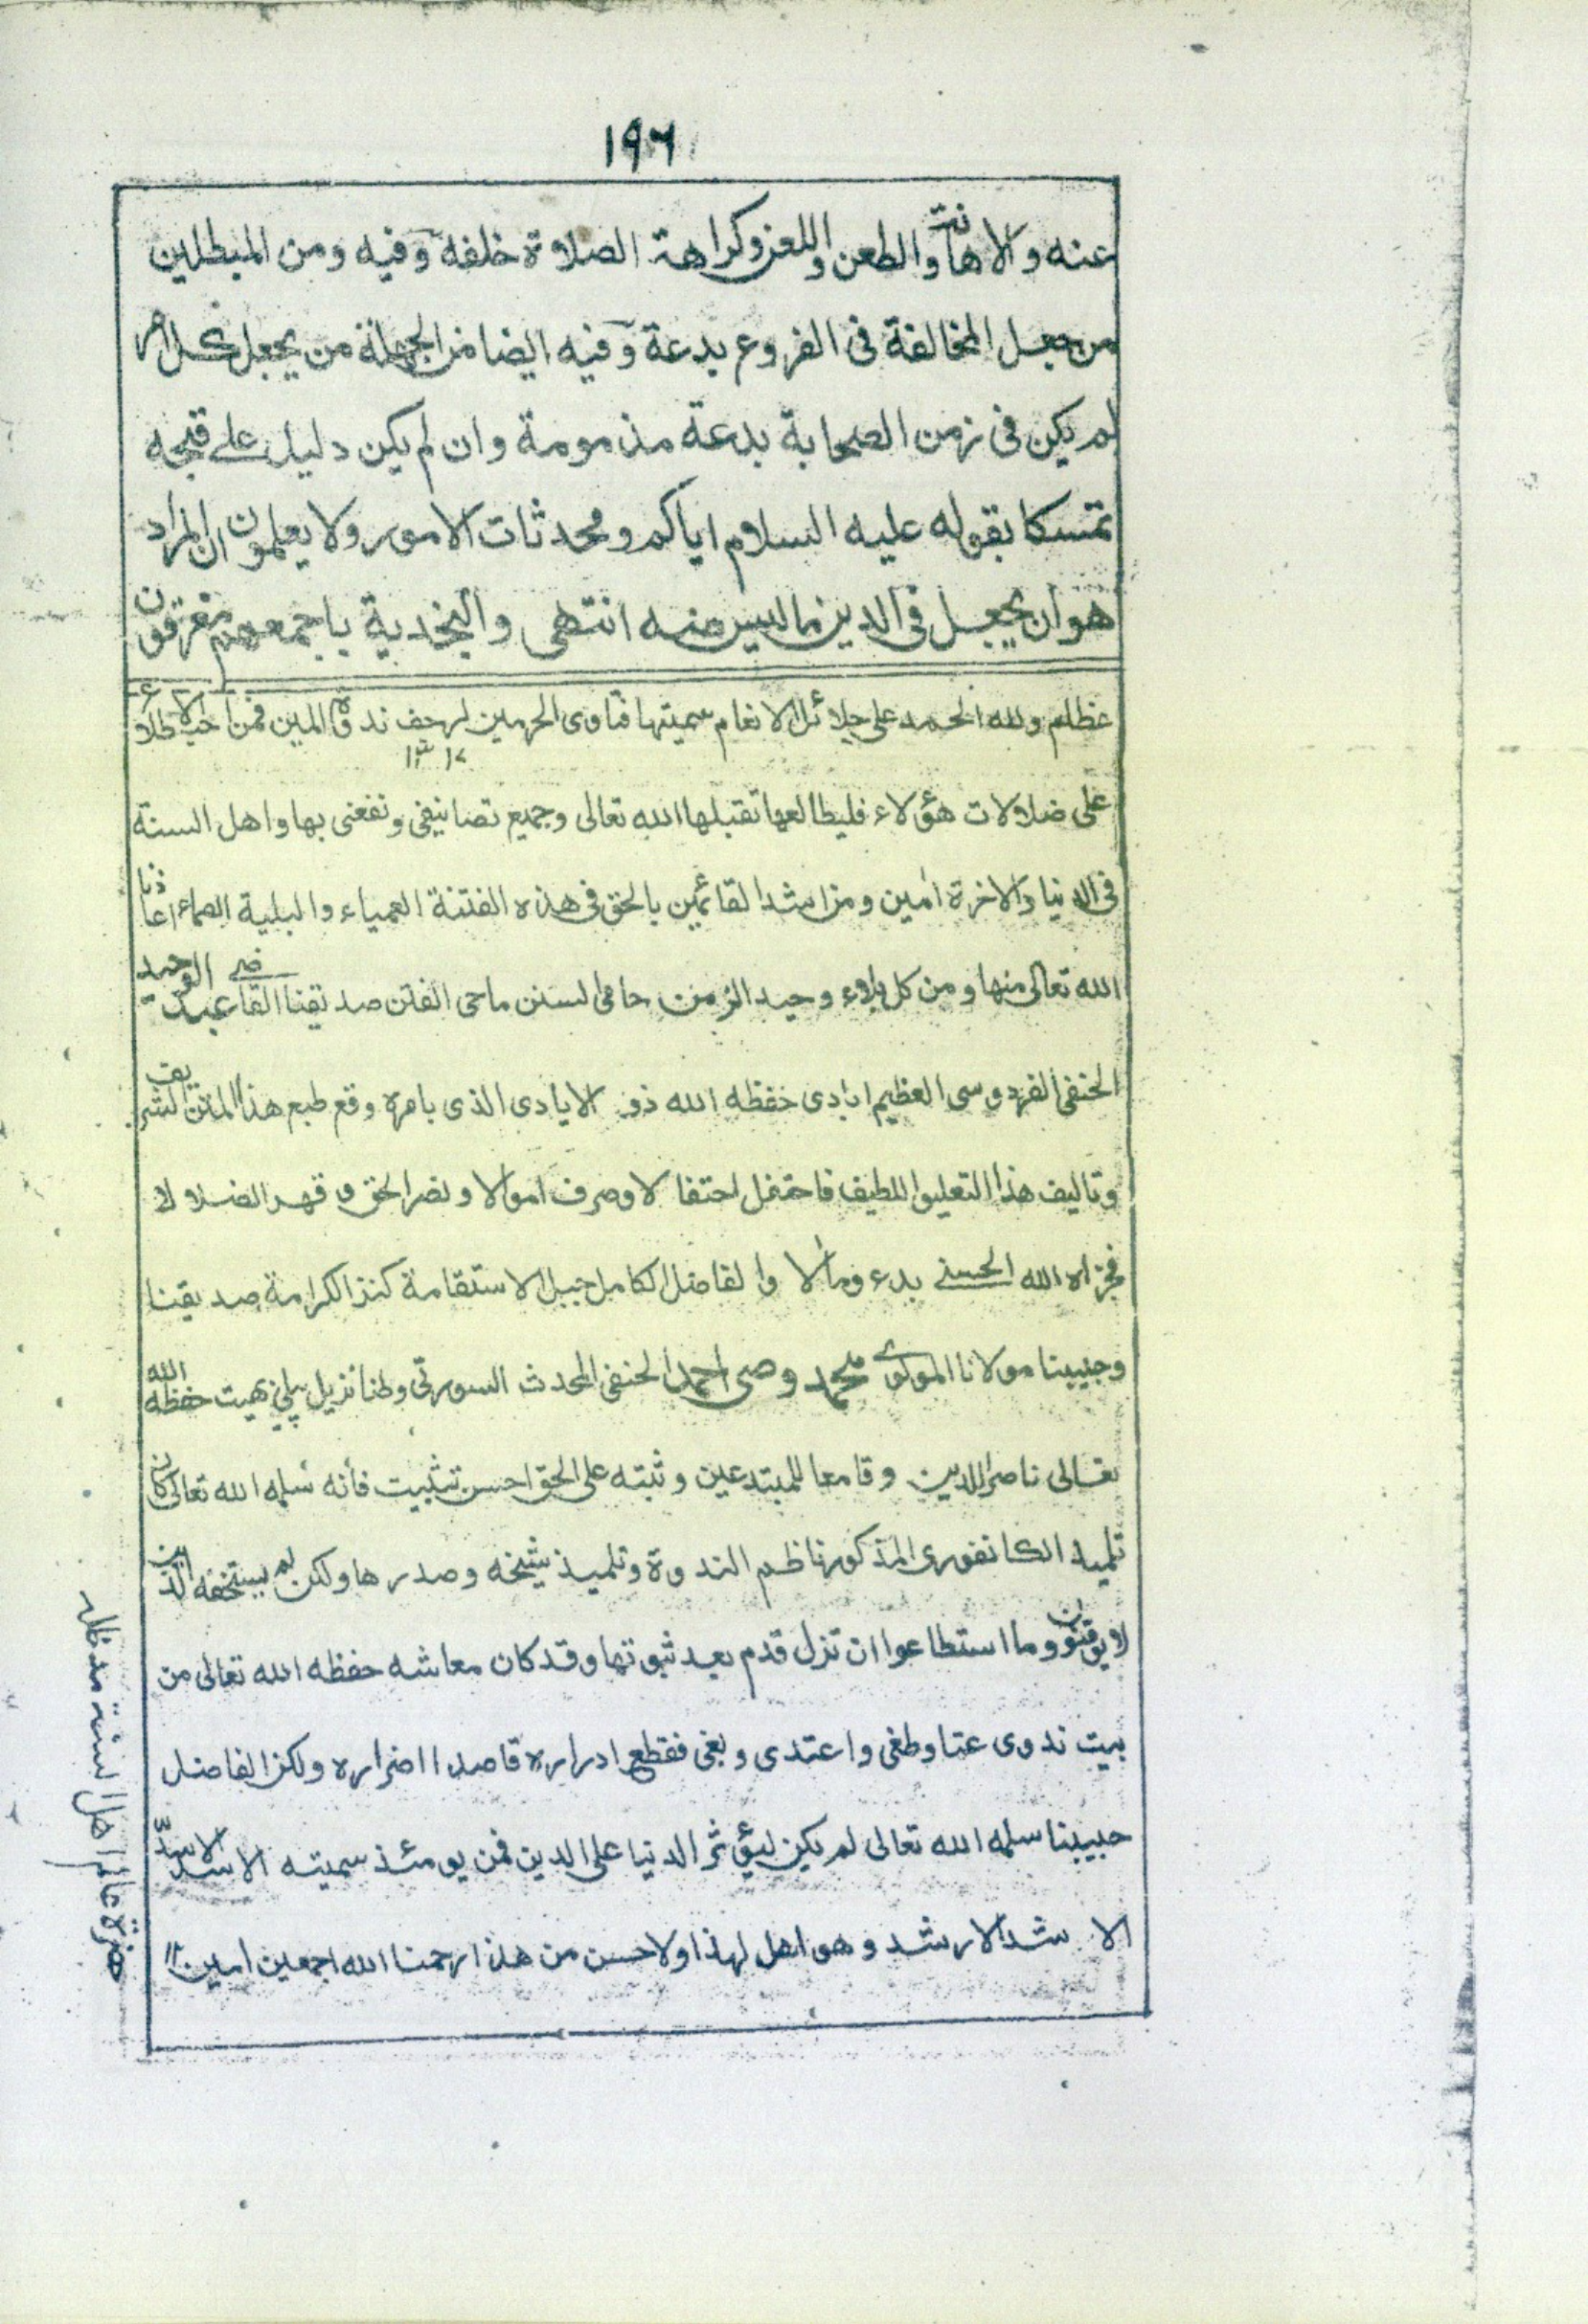 ١٩٦
عنه والاهانة والطعن واللعن وكراهة الصلاة خلفه وفيه ومن المبطلين
من جعل المخالفة فى الفروع بدعة وفيه ايضا من الجهلة من يجعل كل امر
لم يكن فى زمن الصحابة بدعة مذمومة وان لم يكن دليل على قبحه
تمسكا بقوله عليه السلام اياكم ومحدثات الامور ولا يعلمون ان المراد
هو ان يجعل فى الدين ما ليس منه انتهى والنجدية باجمعهم مفرقون
عظام ولله الحمد على جلائل الانعام سميتها فتاوى الحرمين لرجف ندوة المين فمن احب الاطلاع
١٣١٧
على ضلالات هؤلاء فليطالعها تقبلها الله تعالى وجميع تصانيفى ونفعنى بها واهل السنة
فى الدنيا والاخرة امين ومن اشد القائمين بالحق فى هذه الفتنة العمياء والبلية الصماء اعاذنا
الله تعالى منها ومن كل بلاء وحيد الزمن حامى السنن ماحى الفتن صديقنا القاضى عبد الوحيد
الحنفى الفردوسى العظيم ابادى حفظه الله ذو الايادى الذى بامره وقع طبع هذا المتن الشريف
وتاليف هذا التعليق اللطيف فاحتفل احتفالا وصرف اموالا ونصر الحق وقهر الضلالا
فجزاه الله الحسنى بدء ومآلا والفاضل الكامل جبل الاستقامة كنز الكرامة صديقنا
وحبيبنا مولانا المولوى محمد وصى احمد الحنفى المحدث السورتى وطنا نزيل پيلى بهيت حفظه الله
تعالى ناصر اللدين وقامعا للمبتدعين وثبته على الحق احسن تثبيت فأنه سلمه الله تعالى كان
تلميذ الكانفورى المذكور ناظم الندوة وتلميذ شيخه وصدرها ولكن لم يستخفه الذين
لا يوقنون وما استطاعوا ان تزل قدم بعد ثبوتها وقد كان معاشه حفظه الله تعالى من
بيت ندوى عتا وطغى واعتدى وبغى فقطع ادراره قاصدا اضراره ولكن الفاضل
حبيبنا سلمه الله تعالى لم يكن ليؤثر الدنيا على الدين فمن يومئذ سميته الاسد الاسد
الاشد الارشد وهو اهل لهذا ولاحسن من هذا رحمنا الله اجمعين امين ١٢
حضرة عالم اهل السنة مد ظله